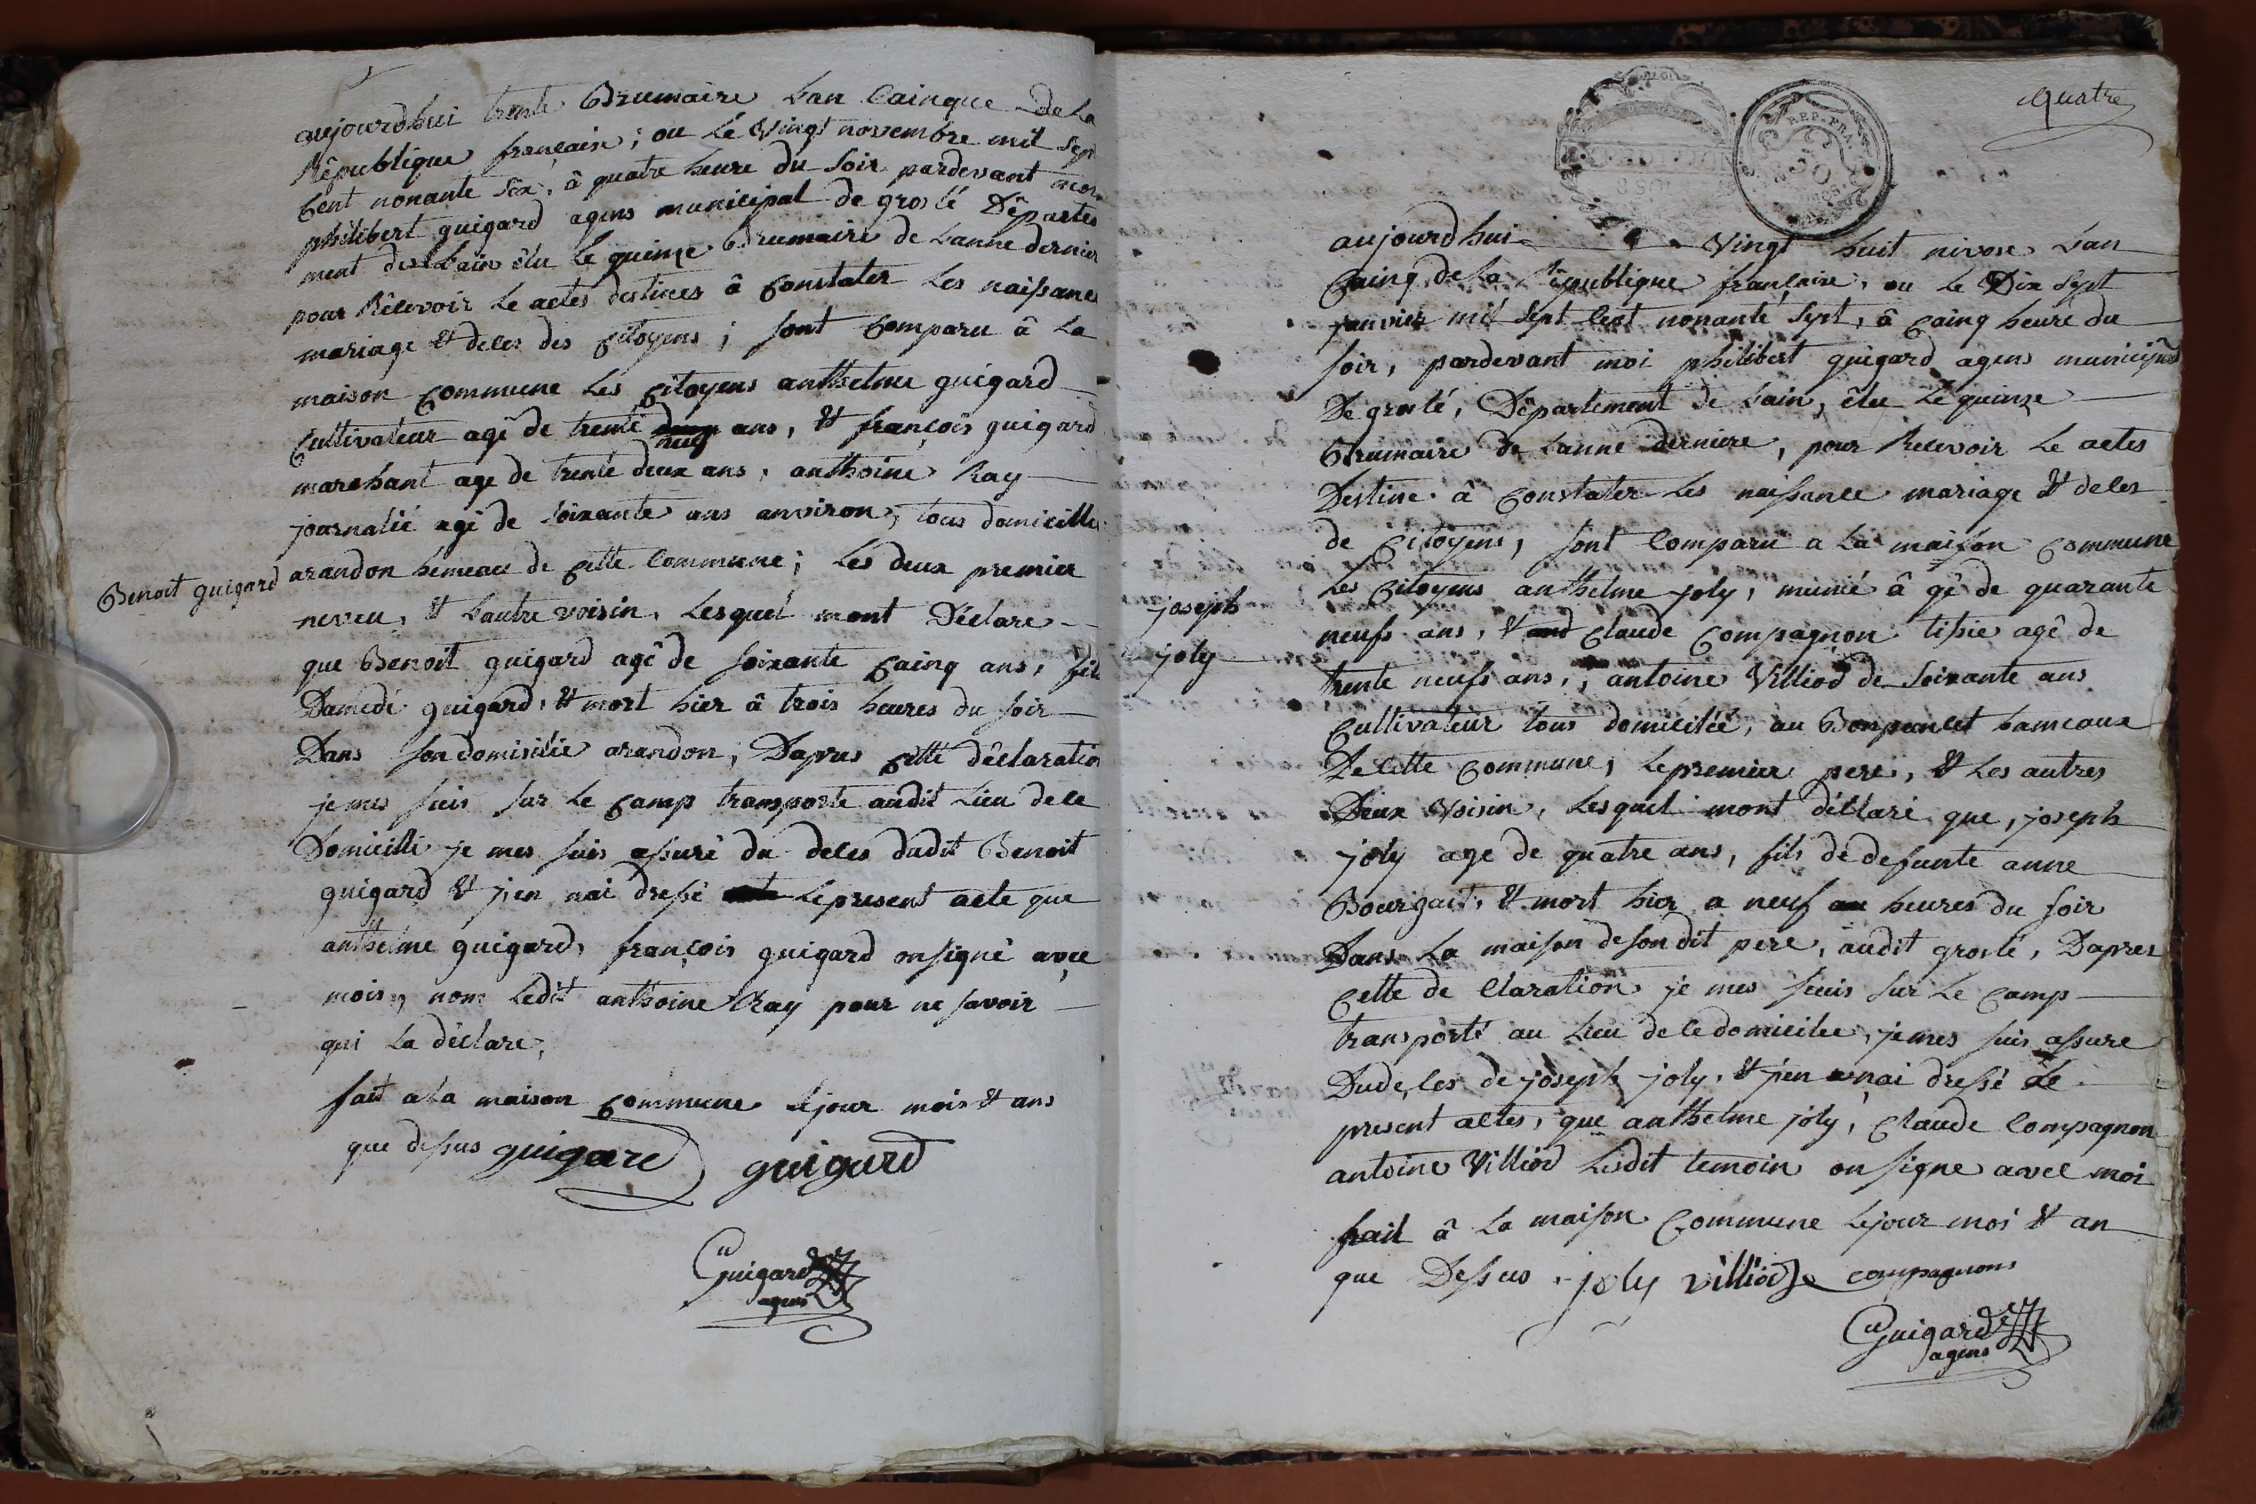 aujourdhui trente Brumaire Lan Cainque de La
République françaire; ou Le vingt novembre mil sept
Cent nonante six, â quatre heure du soir pardevant moi
philibert guigard agens municipal de groslé Départe
ment de Lain élu le quinze Brumaire de Lanne dernier
pour Récevoir Le actes destinées â Constater Les naissance
mariage & deces des Citoyens; sont Comparu â La
maison Commune Les Citoyens anthelme guigard
Cultivateur agé de trente neuf ans, & françois guigard
marchant age de trente deux ans, anthoine Ray
journalié agé de soixante ans anviron, tous domicillé
Benoit guigard
arandon hémeau de Cette Commune; Les deux premier
neveu, & Lautre voisin, Lesquel mont Déclare
que Benoit guigard agé de soixante Cainq ans, fils
Damedé guigard, & mort hier â trois heures du soir
Dans son domisilie arandon, Daprus Cette déclaration
je mes suis sur Le Camp transporté audit Lieu de ce
Domicilli je mes suis assuré du deces dudit Benoit
guigard & j'en nai dressé Lepresent acte que
anthelme guigard, françois guigard onsigné avec
mois, nom Ledit anthoine Ray pour ne savoir
qui La déclare,
fait a La maison Commune Lejour mois & ans
que dessus guigard guigard
Guigard
agens
quatre
REP. FRA.
aujourdhui vingt huit nivose Lan
Cainq de La République françaire, ou Le Dix sept
janvier mil sept Cent nonante sept, â Cainq heure du
soir, pardevant moi philibert guigard agens municipal
De groslé, Département de Lain, élu Le quinze
Brumaire de Lanne derniere, pour Recevoir Le actes
Destine â Constater Les naissance mariage & deces
de Citoyens, sont Comparu a La maison Commune
Les Citoyens anthelme joly, munié â gé de quarante
joseph
joly
neufs ans, & Claude Compagnon tissie agé de
trente neufs ans, antoine Villiod de soixante ans
Cultivateur tous domicilié, au Bonpancet hameaux
De Cette Commune, Lepremier pere, & Les autres
Deux voisin, Lesquel mont déclaré que, joseph
joly age de quatre ans, fils de defunte anne
Bourzait, & mort hier a neuf heures du soir
Dans La maison desondit pere, audit groslé, Dapres
Cette de Claration je mes suis sur Le Camp
transporté au Lieu de ce domicilee, je mes suis assure
Dudeces de joseph joly, & jen nai dressé Le
present actes, que anthelme joly, Claude Compagnon
antoine Villiod Lesdit temoin on signe avec moi
frait â La maison Commune Lejour moi & an
que Dessus, joly villiod compagnons
Guigard
agens